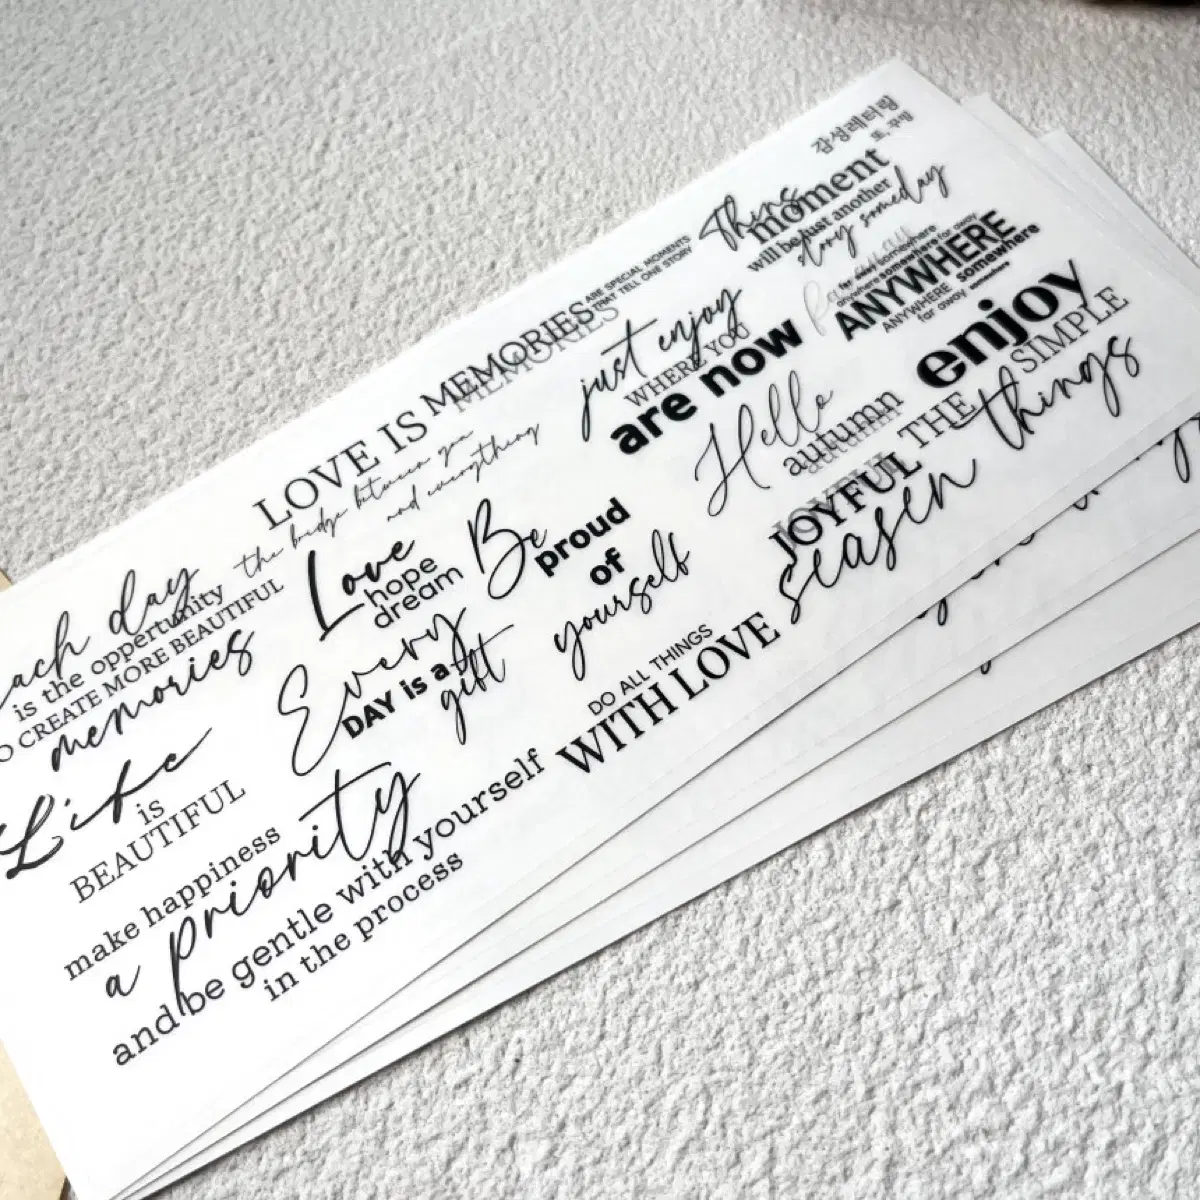 감성레터링
또, 꾸밈
Thins
moment
will be just another
story someday
ARE SPECIAL MOMENTS
THAT TELL ONE STORY
LOVE IS MEMORIES
MEMORIES
the bridge between you
and everything
just enjoy
WHERE YOU
are now
somewhere for away
anywhere somewhere for away
ANYWHERE
ANYWHERE somewhere
far away somewhere
enjoy
SIMPLE
THE things
Hello
autumn
JOYFUL
seasen
each day
is the opportunity
TO CREATE MORE BEAUTIFUL
memories
Love
hope
dream
Be
proud
of
yourself
Every
DAY is a
gift
DO ALL THINGS
WITH LOVE
Life
is
BEAUTIFUL
make happiness
a priority
and be gentle with yourself
in the process